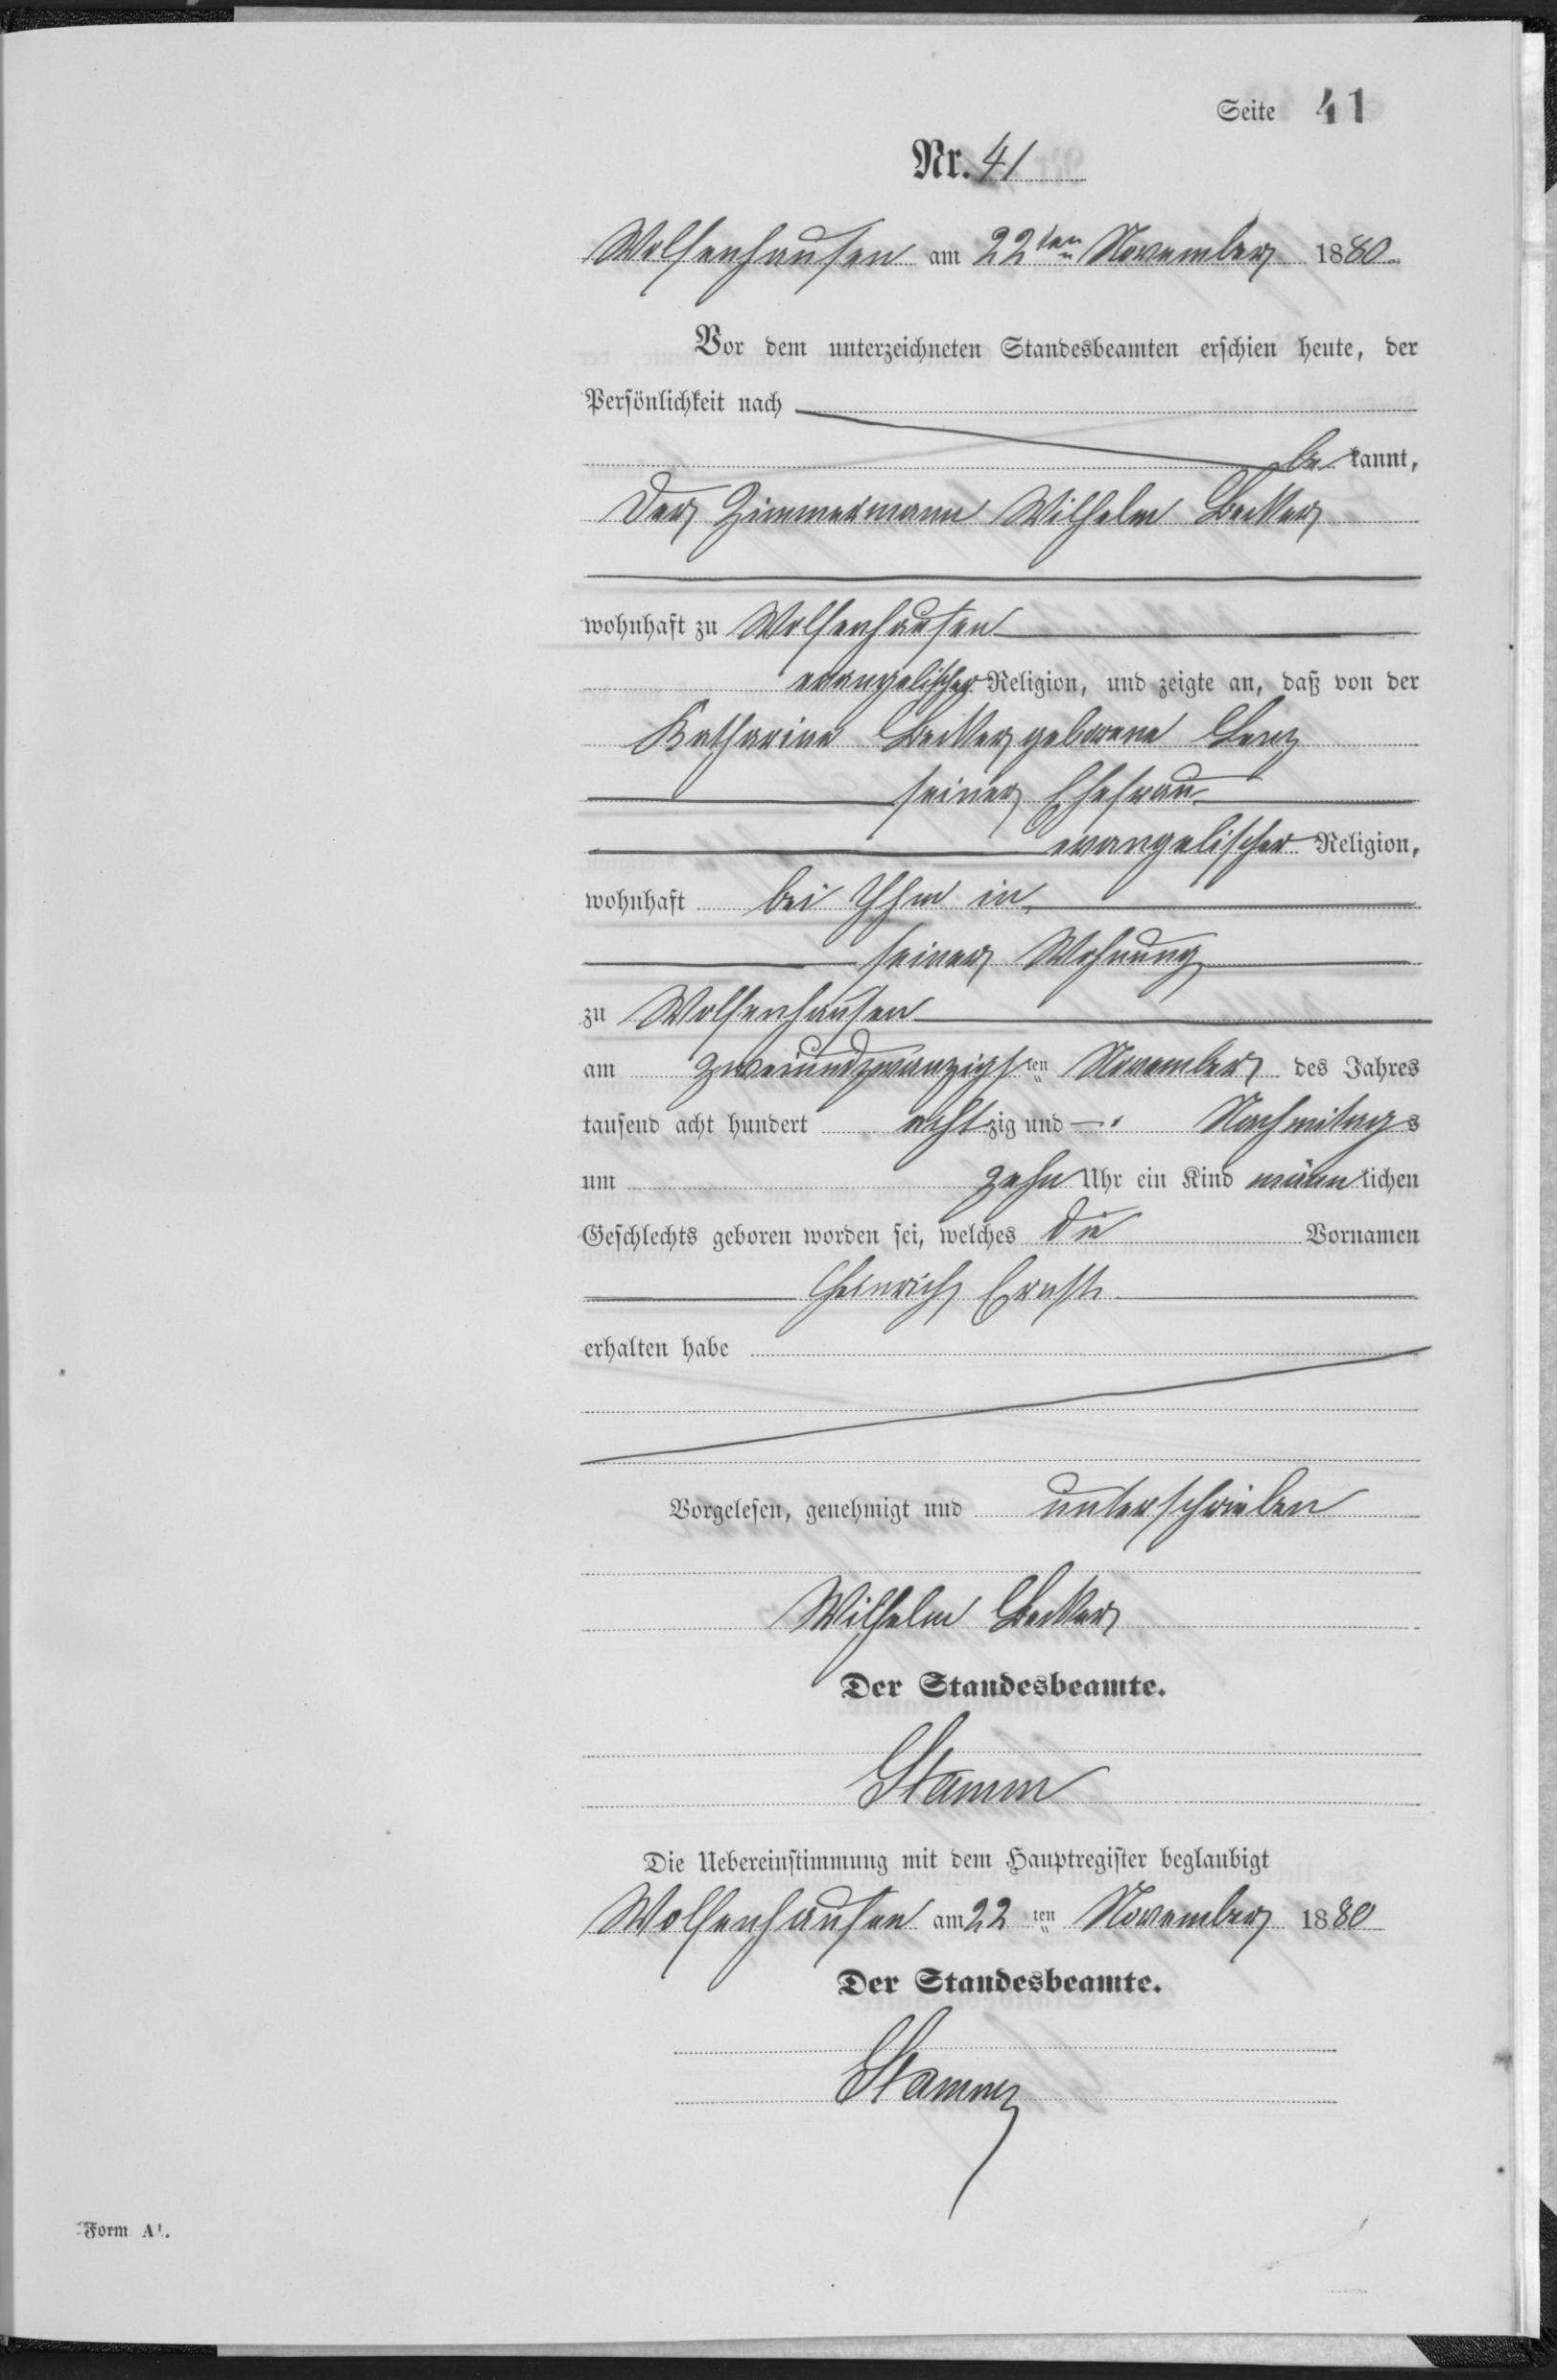 Seite 41
Nr. 41
Wolfenhausen am 22ten November 1880
Vor dem unterzeichneten Standesbeamten erschien heute, der
Persönlichkeit nach
be kannt,
der Zimmermann Wilhelm Becker
wohnhaft zu Wolfenhausen
evangelischer Religion, und zeigte an, daß von der
Katharine Becker geborene Lenz
seiner Ehefrau
evangelischer Religion,
wohnhaft bei Ihm in
seiner Wohnung
zu Wolfenhausen
am zweiundzwanzigsten November des Jahres
tausend acht hundert achtzig und —. Nachmitags
um zehn Uhr ein Kind männlichen
Geschlechts geboren worden sei, welches die Vornamen
Heinrich Ernst
erhalten habe
Vorgelesen, genehmigt und unterschrieben
Wilhelm Becker
Der Standesbeamte.
Stamm
Die Uebereinstimmung mit dem Hauptregister beglaubigt
Wolfenhausen am 22ten November 1880
Der Standesbeamte.
Stamm
Form A¹.